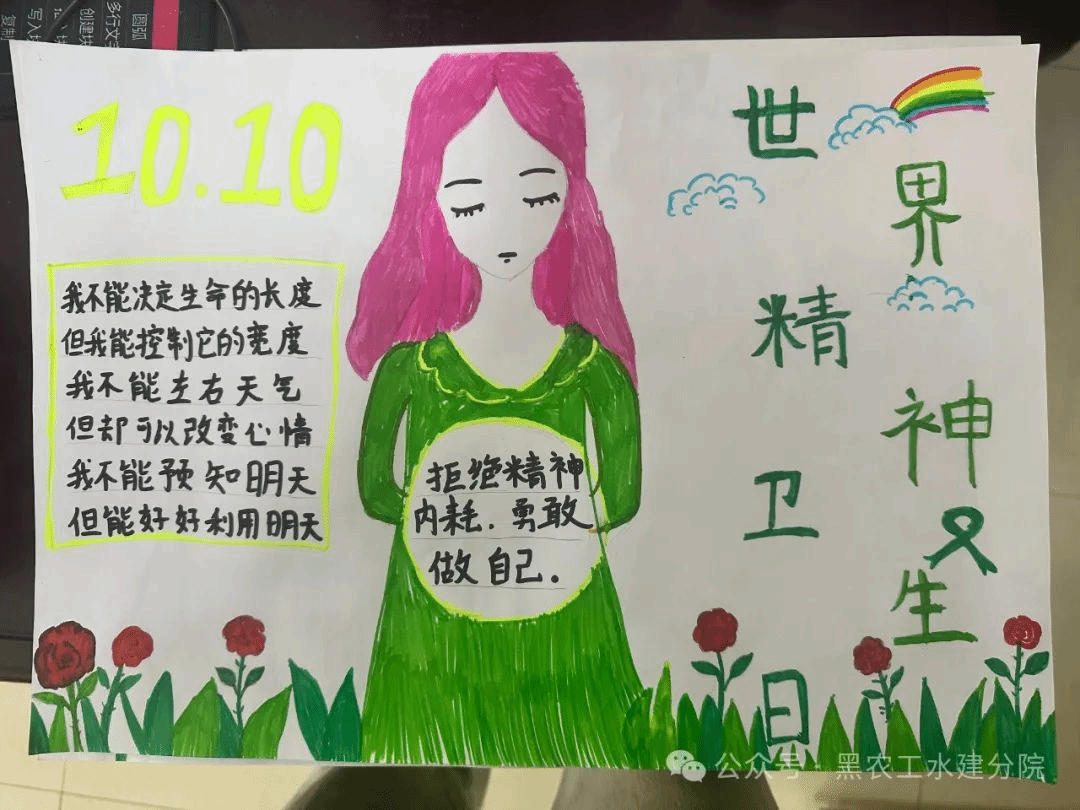 10.10
世界精神卫生日
我不能决定生命的长度
但我能控制它的宽度
我不能左右天气
但却可以改变心情
我不能预知明天
但能好好利用明天
拒绝精神
内耗.勇敢
做自己.
圆弧
多行文字
创建块
写入块
复制
公众号·黑农工水建分院